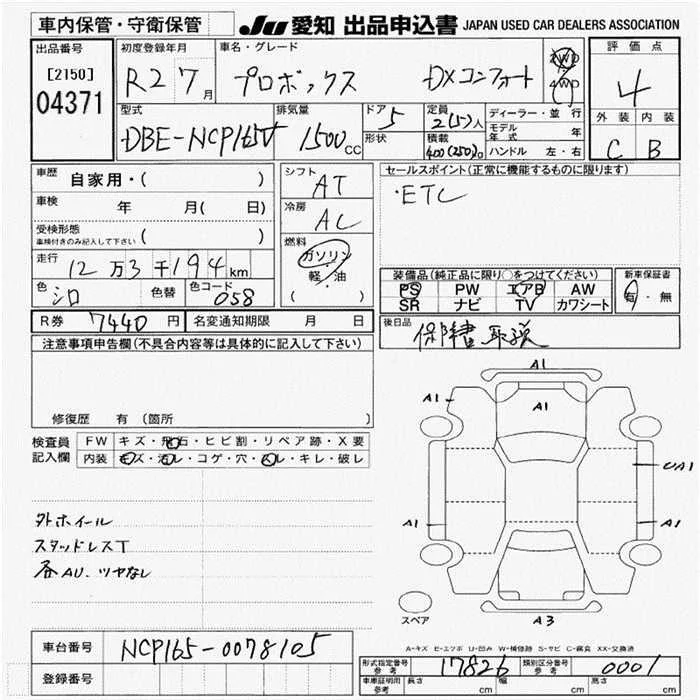 車内保管・守衛保管
JU 愛知 出品申込書 JAPAN USED CAR DEALERS ASSOCIATION
出品番号
[2150]
04371
初度登録年月
R2 7月
車名・グレード
プロボックス DXコンフォート
2WD
4WD
評価点
4
外装 内装
C B
型式
DBE-NCP165V
排気量
1500 CC
ドア 5
形状
定員
2(5)人
積載
400(250)
ディーラー・並行
モデル年式 年
ハンドル 左・右
車歴 自家用・( )
車検 年 月( 日)
受検形態
車検付きのみ記入して下さい ( )
走行
12万3千194km
色 シロ 色替 色コード 058
シフト
AT
冷房
AC
燃料
ガソリン
軽・油
( )
セールスポイント(正常に機能するものに限ります)
・ETC
装備品(純正品に限り○をつけてください)
PS PW エアB AW
SR ナビ TV カワシート
新車保証書
有・無
R券 7440 円 名変通知期限 月 日
後日品 保障書 取説
注意事項申告欄(不具合内容等は具体的に記入して下さい)
修復歴 有 (箇所 )
検査員記入欄
FW キズ・飛石・ヒビ割・リペア跡・X要
内装 キズ・汚レ・コゲ・穴・スレ・キレ・破レ
外ホイール
スタッドレスT
各AU、ツヤなし
A1
A1
A1
UA1
A1
A1
A3
スペア
A-キズ E-エクボ U-凹み W-補修跡 S-サビ C-腐食 XX-交換済
車台番号 NCP165-0078105
登録番号
形式指定番号 参考 17826 類別区分番号 参考 0001
車庫証明用 参考 長さ cm 幅 cm 高さ cm